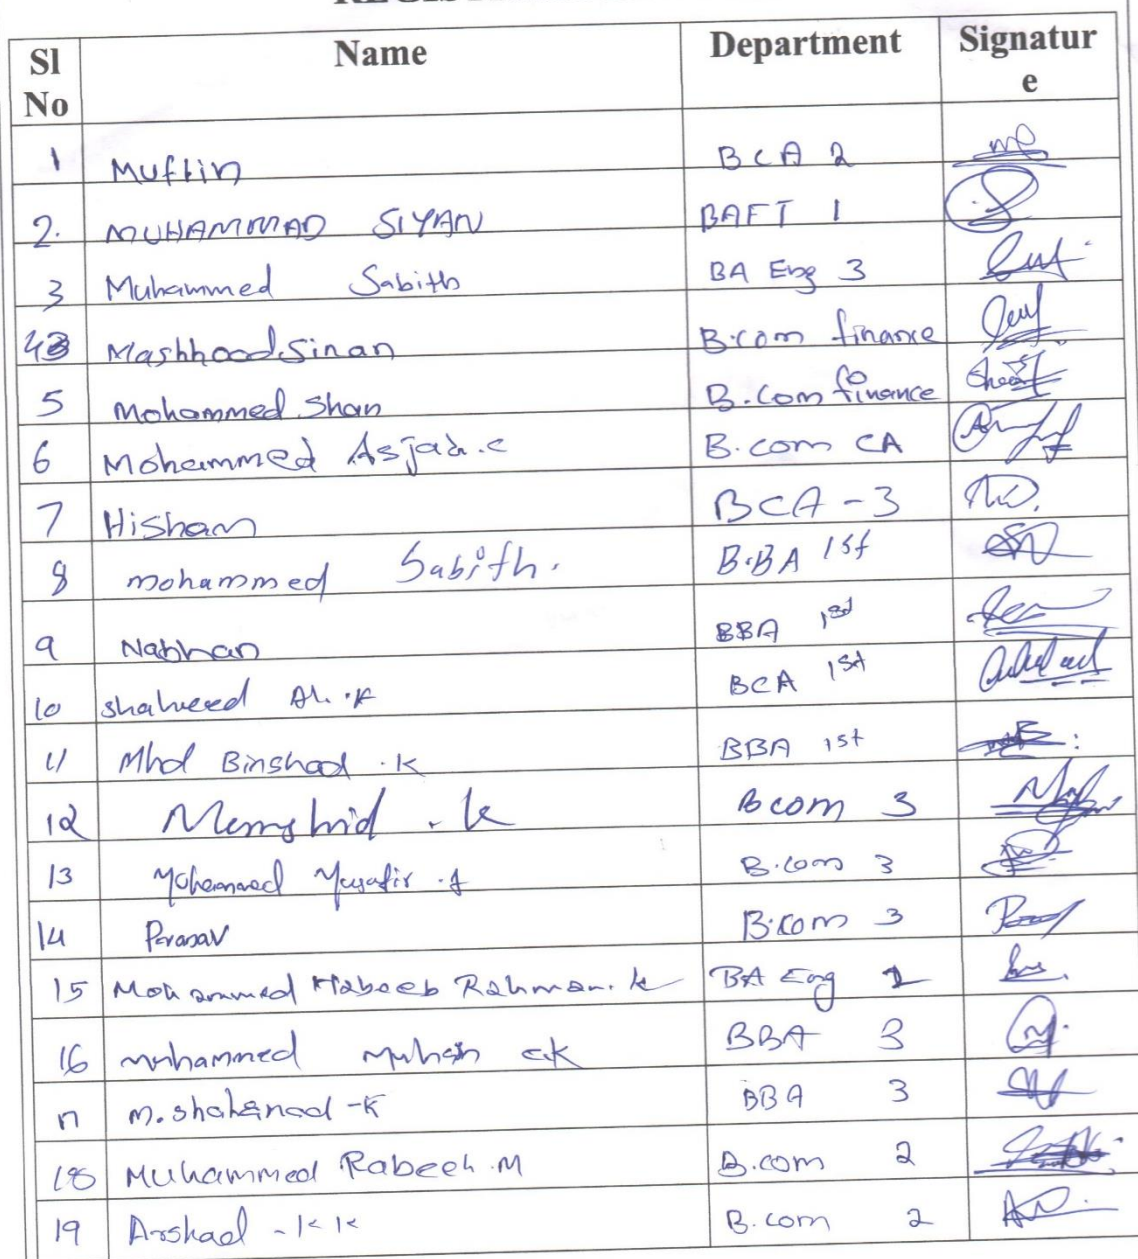 Sl No Name Department Signature
1 Muflin BCA 2
2. MUHAMMAD SIYAN BAFT 1
3 Muhammed Sabith BA Eng 3
4 Mashhood Sinan B.com finance
5 Mohammed Shan B.Com finance
6 Mohammed Asjad.c B.com CA
7 Hisham BCA - 3
8 mohammed Sabith. B.BA 1st
9 Nabhan BBA 1st
10 shaheed Ali .K BCA 1st
11 Mhd Binshad .K BBA 1st
12 . k Bcom 3
13 Mohammed B.com 3
14 Pranav B.com 3
15 Mohammed Habeeb Rahman. k BA Eng
16 muhammed ck BBA 3
17 m. -K BBA 3
18 Muhammed Rabeeh .M B.com 2
19 Arshad - k k B. com 2